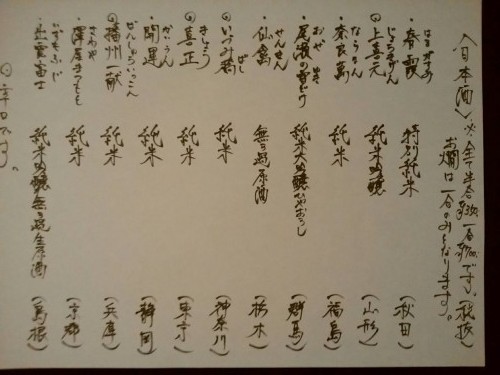 〈日本酒〉※全て半合 一合 です。(税抜)
お燗は一合のみとなります。
はるがすみ
・春霞 特別純米 (秋田)
じょうきげん
◎上喜元 純米吟醸 (山形)
ならまん
・奈良萬 純米 (福島)
おぜ ゆき
・尾瀬の雪どけ 純米大吟醸ひやおろし (群馬)
せんきん
・仙禽 無ろ過原酒 (栃木)
ばし
・いづみ橋 純米 (神奈川)
きしょう
◎喜正 純米 (東京)
かいうん
・開運 純米 (静岡)
ばんしゅういっこん
◎播州一献 純米 (兵庫)
さわや
・澤屋まつもと 純米 (京都)
いずもふじ
・出雲富士 純米吟醸無ろ過生原酒 (島根)
◎辛口です。